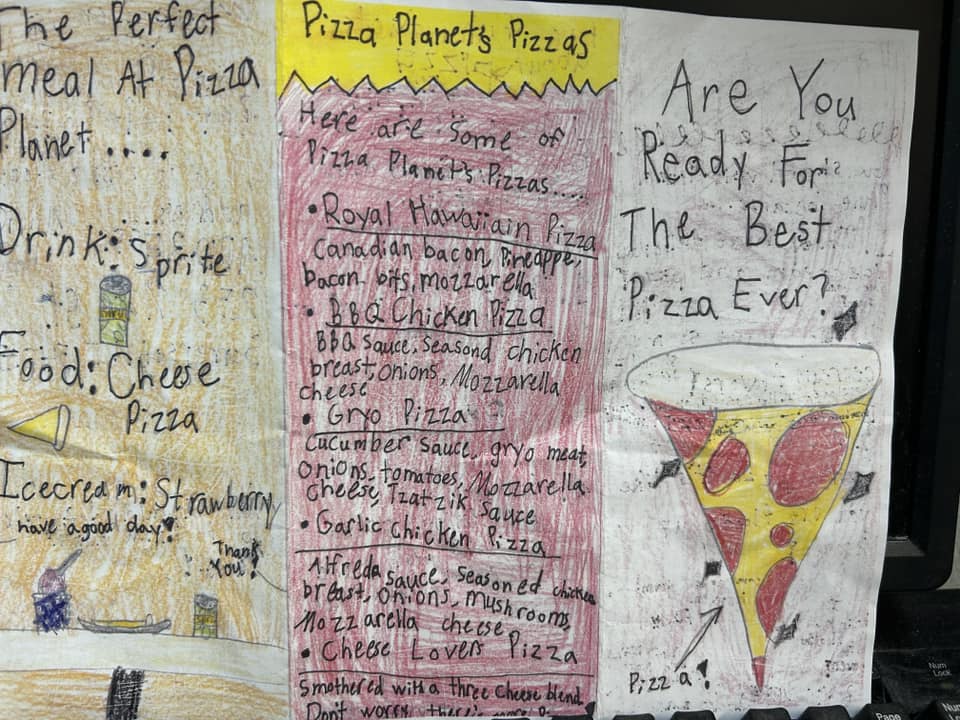 The Perfect
meal At Pizza
Planet ....
Drink: Sprite
Food: Cheese
Pizza
Icecream: Strawberry
have a good day!
Thank
You!
Pizza Planet's Pizzas
Here are some of
Pizza Planet's Pizzas.....
• Royal Hawaiiain Pizza
Canadian bacon, Pineappe,
bacon bits, mozzarella
• BBQ Chicken Pizza
BBQ sauce, seasond chicken
breast, onions, Mozzarella
cheese
• Gryo Pizza
Cucumber sauce, gryo meat,
onions, tomatoes, Mozzarella
cheese, Tzatzik sauce
• Garlic chicken Pizza
Alfreda sauce, seasoned chicken
breast, onions, mushrooms,
Mozzarella cheese
• Cheese Lovers Pizza
Smothered with a three cheese blend
Don't worry there's more
Are You
Ready For
The Best
Pizza Ever?
Pizza!
Num
Lock
Page
Num